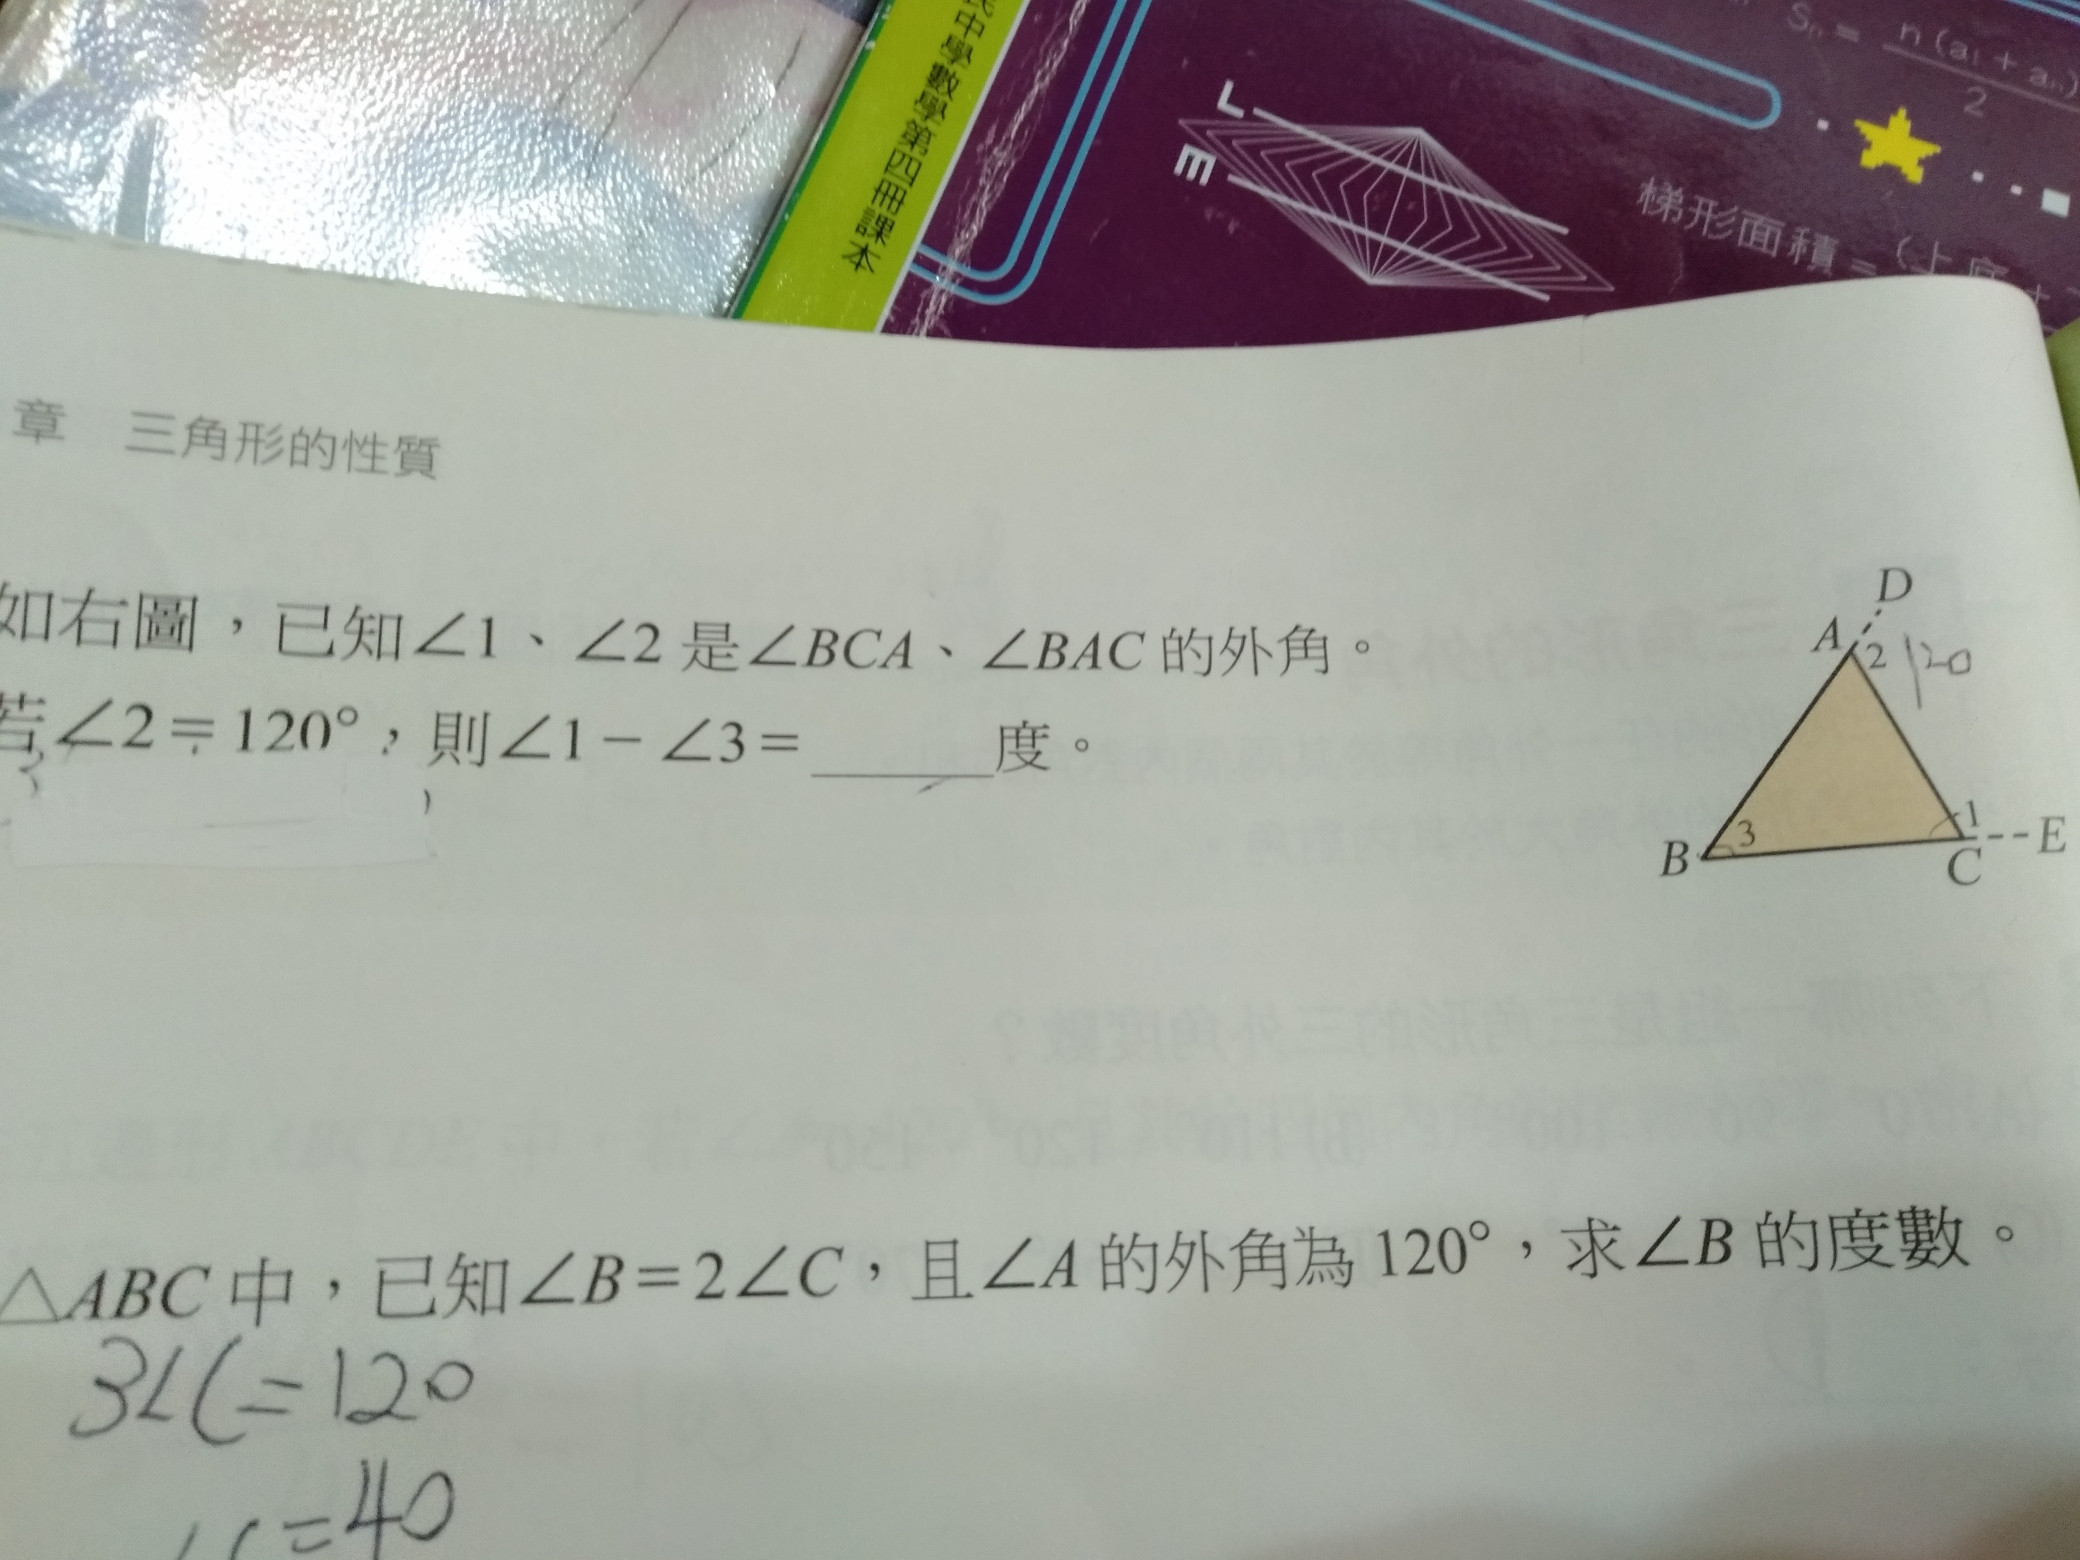 中學數學第四冊課本
L
m
Sn = n(a1 + an)
2
梯形面積 = (上底 +
章 三角形的性質
如右圖，已知∠1、∠2是∠BCA、∠BAC的外角。
若∠2=120°，則∠1-∠3=______度。
D
A
2
120
B
3
1
C
E
△ABC中，已知∠B=2∠C，且∠A的外角為120°，求∠B的度數。
3∠C=120
∠C=40